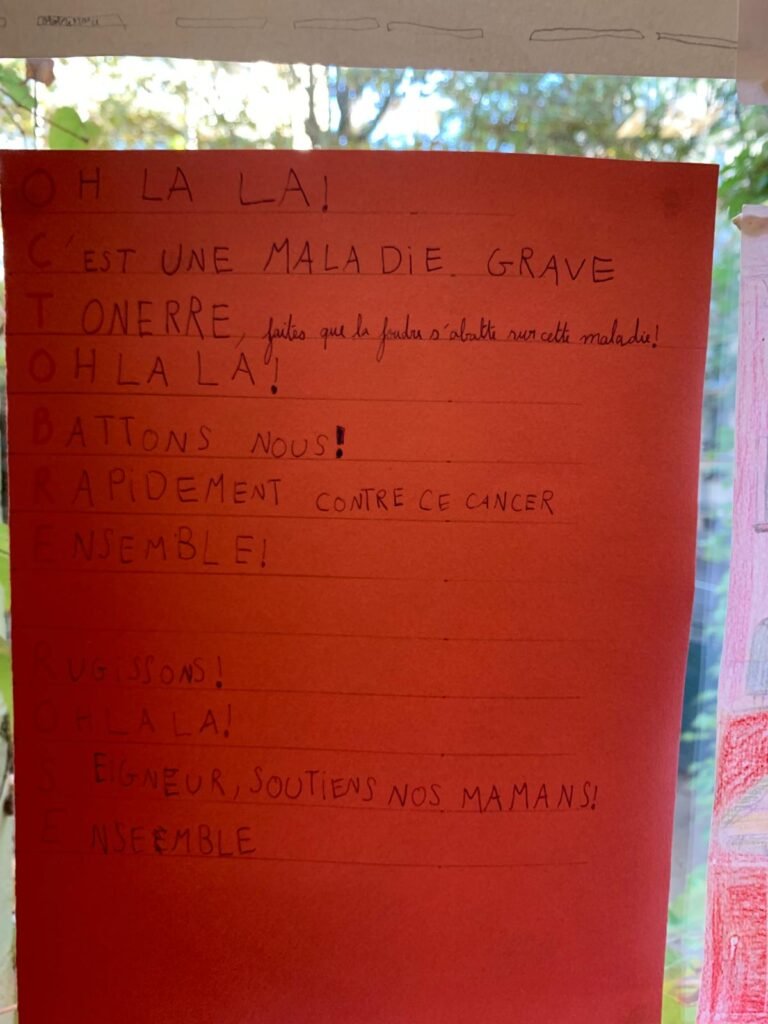 OH LA LA!
C'EST UNE MALADIE GRAVE
TONERRE, faites que la foudre s'abatte sur cette maladie!
OH LA LA!
BATTONS NOUS!
RAPIDEMENT CONTRE CE CANCER
ENSEMBLE!
RUGISSONS!
OH LA LA!
SEIGNEUR, SOUTIENS NOS MAMANS!
ENSEEMBLE